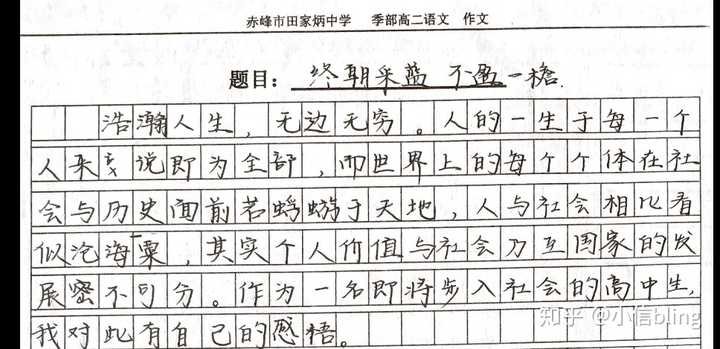 赤峰市田家炳中学 季部高二语文 作文
题目：终朝采蓝 不盈一襜.
浩瀚人生，无边无穷。人的一生于每一个
人来说即为全部，而世界上的每个个体在社
会与历史面前若蜉蝣于天地，人与社会相比看
似沧海粟，其实个人价值与社会乃至国家的发
展密不可分。作为一名即将步入社会的高中生，
我对此有自己的感悟。
知乎 @小信bling